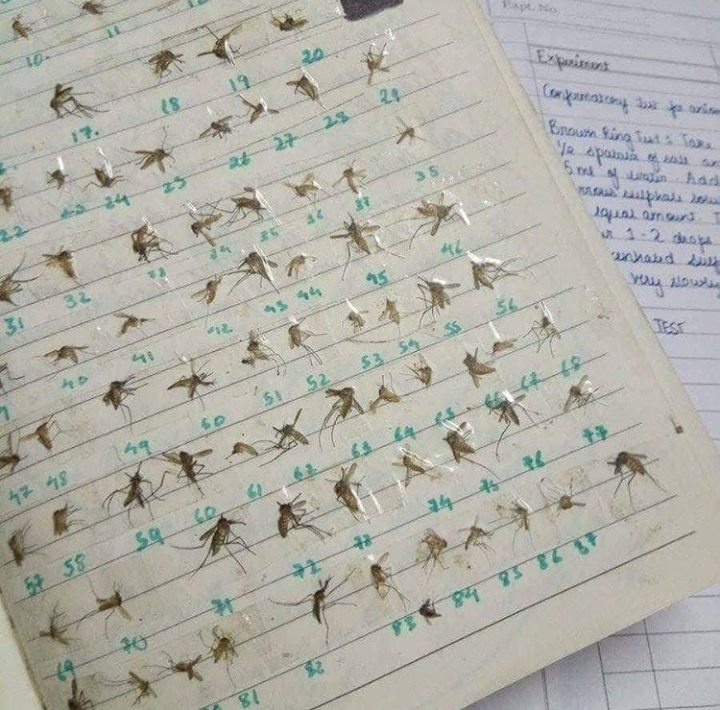 10. 11
17. 18 19 20
22 23 24 25 26 27 28 29
31 32 33 34 35 36 37 38
40 41 42 43 44 45 46
47 48 49 50 51 52 53 54 55 56
57 58 59 60 61 62 63 64 65 66 67 68
69 70 71 72 73 74 75 76 77
81 82 83 84 85 86 87
Expt. No.
Experiment
Confirmatory test for
Brown Ring Test : Take
1/2 spatula of salt
5 ml of water. Add
sulphate
equal amount.
1-2 drops
very slowly
TEST